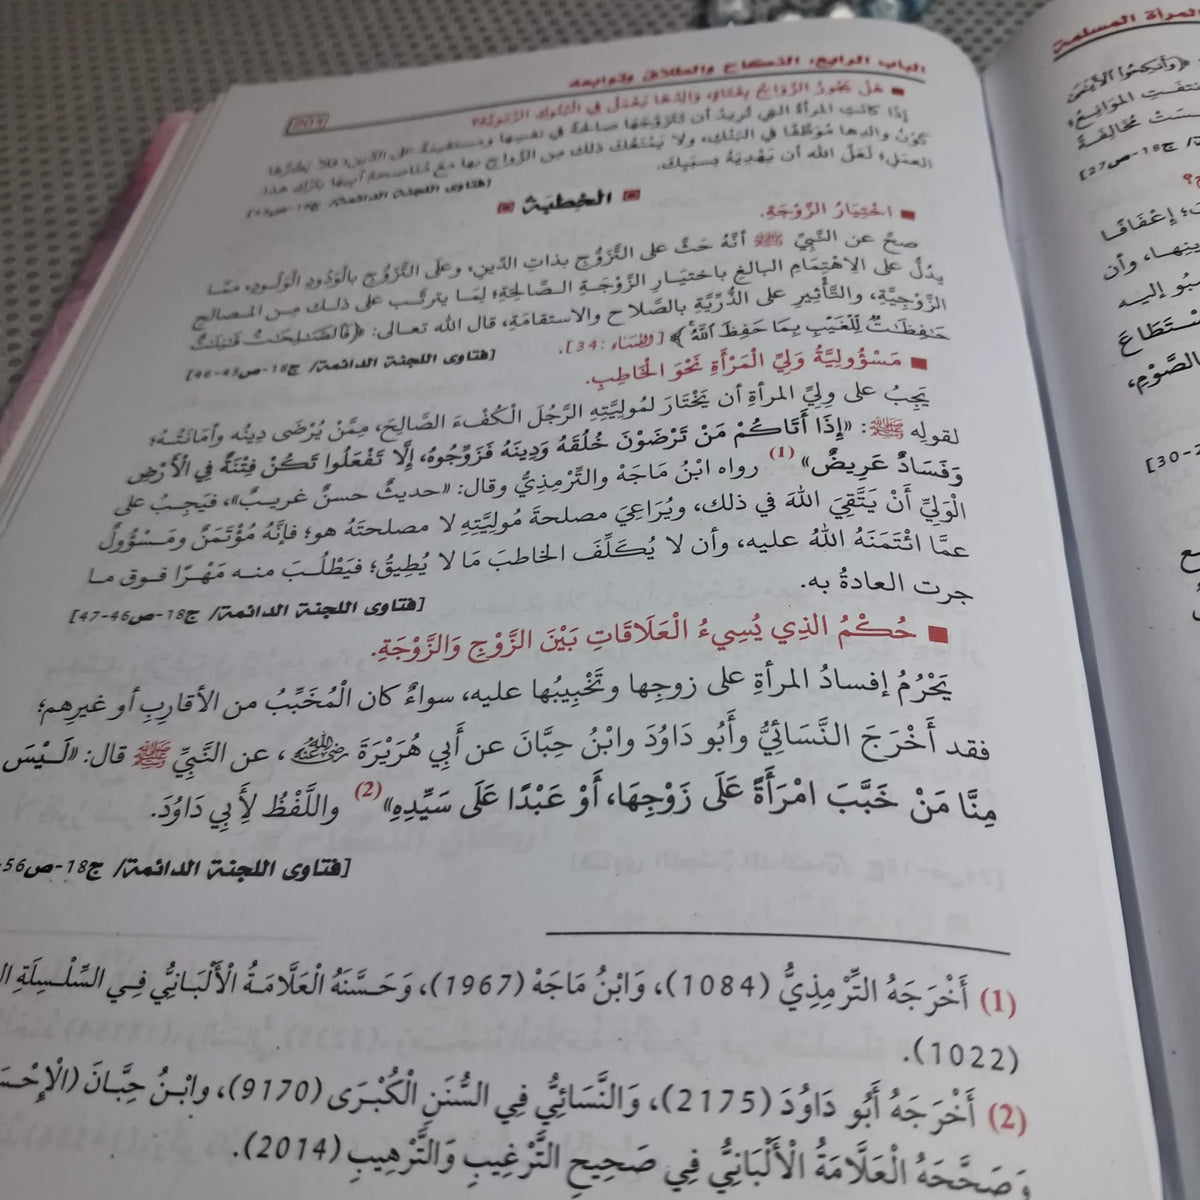 الباب الرابع: النكاح والطلاق وتوابعه
205
■ هَلْ يَجُوزُ الزَّوَاجُ بِفَتَاةٍ، وَالِدُهَا يَعْمَلُ فِي الْبُنُوكِ الرِّبَوِيَّةِ؟
إذَا كَانَتِ المرأةُ التِي تُرِيدُ أن تَتَزَوَّجَهَا صالحةً في نفسِها ومستقيمةً على الدِّينِ، فلا يَضُرُّهَا
كَوْنُ والدِها مُوَظَّفًا في البَنْكِ، ولا يَمْنَعُكَ ذلك مِن الزَّواجِ بها مع مُنَاصحةِ أبيهَا بتَرْكِ هذا
العملِ؛ لَعَلَّ الله أن يَهْدِيَهُ بِسَبَبِكَ.
[فتاوى اللجنة الدائمة/ ج18-ص
الخِطبَة
■ اخْتِيَارُ الزَّوْجَةِ.
صحَّ عن النَّبِيِّ ﷺ أنَّهُ حَثَّ على التَّزَوُّجِ بذاتِ الدِّينِ، وعلَى التَّزَوُّجِ بالْوَدُودِ الْوَلُودِ، ممَّا
يدُلُّ على الاهْتِمَامِ البالغِ باختيَارِ الزَّوْجَةِ الصَّالِحَةِ؛ لِمَا يترتَّب على ذلك مِن المصالحِ
الزَّوْجِيَّةِ، والتَّأْثِيرِ على الذُّرِّيَّةِ بالصَّلاحِ والاستقامَةِ، قال الله تعالى: ﴿فَالصَّـٰلِحَـٰتُ قَـٰنِتَـٰتٌ
حَـٰفِظَـٰتٌ لِّلْغَيْبِ بِمَا حَفِظَ ٱللَّهُ﴾ [النِّسَاء :34].
[فتاوى اللجنة الدائمة/ ج18-ص45-46]
■ مَسْؤُولِيَّةُ وَلِيِّ الْمَرْأَةِ نَحْوَ الْخَاطِبِ.
يَجِبُ على وليِّ المرأةِ أن يَخْتَارَ لمُولِيَّتِهِ الرَّجُلَ الْكُفْءَ الصَّالِحَ، مِمَّنْ يُرْضَى دِينُه وأمَانَتُهُ؛
لقولِه ﷺ: «إِذَا أَتَاكُمْ مَنْ تَرْضَوْنَ خُلُقَهُ وَدِينَهُ فَزَوِّجُوهُ، إِلَّا تَفْعَلُوا تَكُنْ فِتْنَةٌ فِي الْأَرْضِ
وَفَسَادٌ عَرِيضٌ» (1) رواه ابْنُ مَاجَهْ والتِّرْمِذِيُّ وقال: «حديثٌ حسنٌ غريبٌ»، فيَجِبُ على
الْوَلِيِّ أَنْ يَتَّقِيَ اللهَ في ذلك، ويُرَاعِيَ مصلحةَ مُولِيَّتِهِ لا مصلحتَهُ هو؛ فإنَّهُ مُؤْتَمَنٌ ومَسْؤُولٌ
عمَّا ائْتَمَنَهُ اللهُ عليه، وأن لا يُكَلِّفَ الخاطبَ مَا لا يُطِيقُ؛ فيَطْلُبَ منه مَهْرًا فوق ما
جرت العادةُ به.
[فتاوى اللجنة الدائمة/ ج18-ص46-47]
■ حُكْمُ الذِي يُسِيءُ الْعَلَاقَاتِ بَيْنَ الزَّوْجِ وَالزَّوْجَةِ.
يَحْرُمُ إفسادُ المرأةِ على زوجِها وتَخْبِيبُها عليه، سواءٌ كان الْمُخَبِّبُ من الأقاربِ أو غيرِهم؛
فقد أَخْرَجَ النَّسَائِيُّ وأَبُو دَاوُدَ وابْنُ حِبَّانَ عن أَبِي هُرَيْرَةَ رضي الله عنه، عن النَّبِيِّ ﷺ قال: «لَيْسَ
مِنَّا مَنْ خَبَّبَ امْرَأَةً عَلَى زَوْجِهَا، أَوْ عَبْدًا عَلَى سَيِّدِهِ» (2) واللَّفْظُ لِأَبِي دَاوُدَ.
[فتاوى اللجنة الدائمة/ ج18-ص56-
(1) أَخْرَجَهُ التِّرْمِذِيُّ (1084)، وَابْنُ مَاجَهْ (1967)، وَحَسَّنَهُ الْعَلَّامَةُ الْأَلْبَانِيُّ فِي السِّلْسِلَةِ
(1022).
(2) أَخْرَجَهُ أَبُو دَاوُدَ (2175)، وَالنَّسَائِيُّ فِي السُّنَنِ الْكُبْرَى (9170)، وابْنُ حِبَّانَ
وَصَحَّحَهُ الْعَلَّامَةُ الْأَلْبَانِيُّ فِي صَحِيحِ التَّرْغِيبِ وَالتَّرْهِيبِ (2014).
المرأة المسلمة